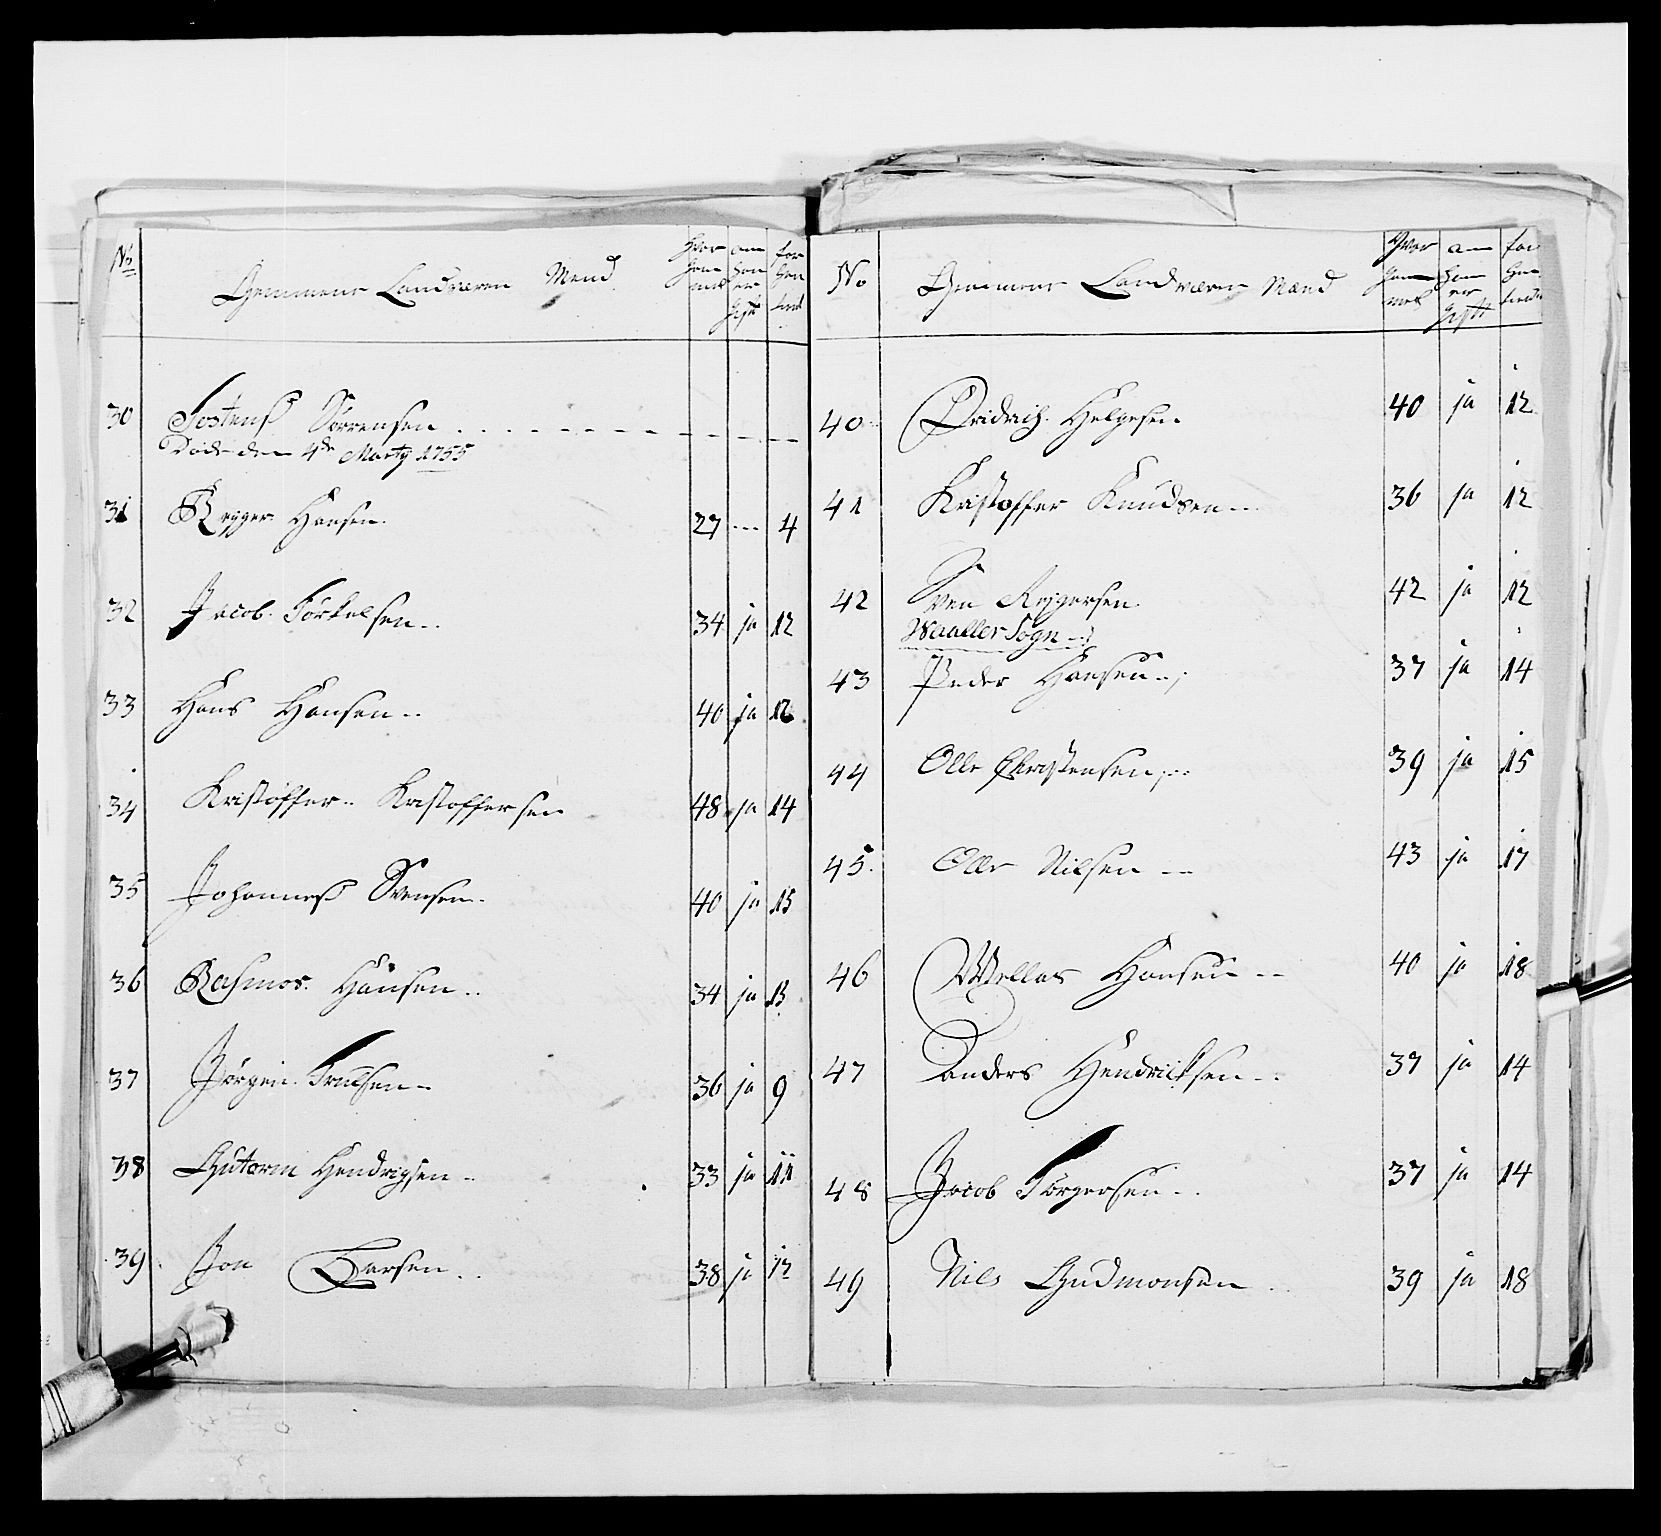 No
Gemmene Landværn Mend
Hvor gam mel
om han er gift
for han tient
30 Tostenß Sørrensen
Døde den 4de Marty 1755
31 Regger Hansen 27 -- 4
32 Jacob Torkelsen 34 ja 12
33 Hans Hansen 40 ja 12
34 Kristoffer Kristoffersen 48 ja 14
35 Johanneß Svensen 40 ja 15
36 Rasmos Hansen 34 ja 13
37 Jørgen Truesen 36 ja 9
38 Gutorm Hendrigsen 33 ja 11
39 Jon Larsen 38 ja 12
No
Gemmene Landværn Mænd
Hvor gam mel
om han er gift
for han tient
40 Dridrich Helgesen 40 ja 12
41 Kristoffer Knudsen 36 ja 12
42 Sven Rejgersen 42 ja 12
Waaller Sogn
43 Peder Hansen 37 ja 14
44 Olle Christensen 39 ja 15
45 Olle Nilsen 43 ja 17
46 Wellas Hansen 40 ja 18
47 Anders Hendricksen 37 ja 14
48 Jacob Torgersen 37 ja 14
49 Nils Gudmonsen 39 ja 18